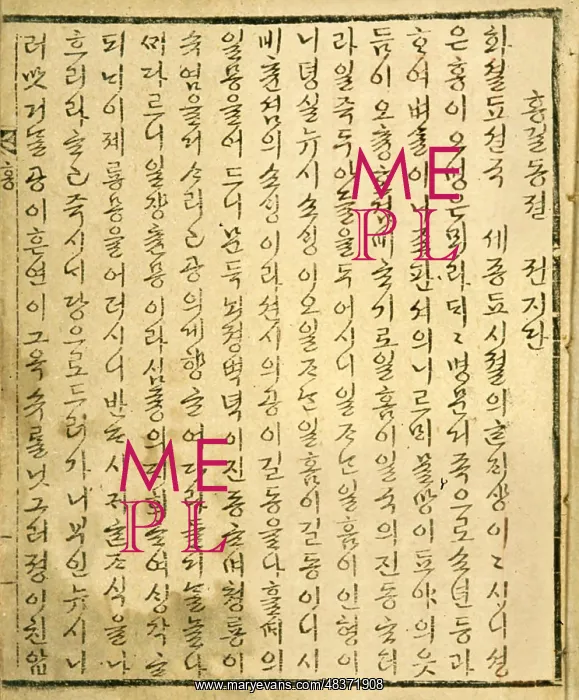 홍길동젼 권지단
화셜 됴션국 셰종됴 시졀의 ᄒᆞᆫ ᄌᆡ상이 이시니 셩
은 홍이오 명은 뫼라 ᄃᆡᄃᆡ 명문거족으로 쇼년 등과
ᄒᆞ여 벼슬이 니조판셔의 니르ᄆᆡ 물망이 됴야의 웃
듬이오 츙효겸비ᄒᆞ기로 일홈이 일국의 진동ᄒᆞ더
라 일즉 두 아들을 두어시니 일ᄌᆞᄂᆞᆫ 일홈이 인형이
니 뎡실 뉴시 쇼ᄉᆡᆼ이오 일ᄌᆞᄂᆞᆫ 일홈이 길동이니 시
비 츈셤의 쇼ᄉᆡᆼ이라 션시의 공이 길동을 나흘 ᄯᆡ의
일몽을 어드니 문득 뇌졍벽녁이 진동ᄒᆞ며 쳥룡이
슈염을 거ᄉᆞ리고 공의게 향ᄒᆞ여 다라들거ᄂᆞᆯ 놀나
ᄭᆡ다르니 일쟝츈몽이라 심즁의 ᄃᆡ희ᄒᆞ여 ᄉᆡᆼ각ᄒᆞ
되 ᄂᆡ 이졔 룡몽을 어더시니 반ᄃᆞ시 귀ᄒᆞᆫ ᄌᆞ식을 나
흐리라 ᄒᆞ고 즉시 ᄂᆡ당으로 드러가니 부인 뉴시 니
러 맛거ᄂᆞᆯ 공이 흔연이 그 옥슈를 닛그러 졍이 친압
홍
ME
PL
ME
PL
www.maryevans.com/48371908